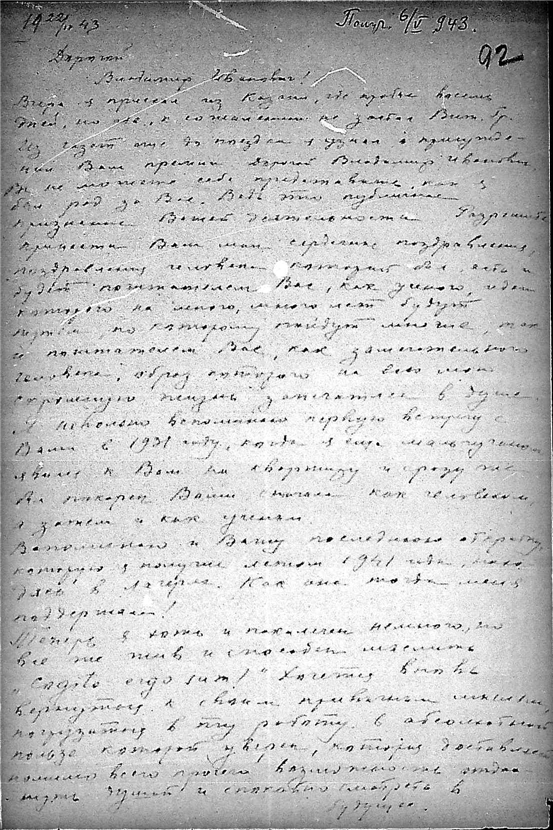 19 22/IV 43
Получ. 6/V 943.
92
Дорогой
Владимир Иванович!
Вчера я приехал из Казани, где пробыл восемь
дней, но, к сожалению не застал Вин. Гр.
Из газет еще до поездки я узнал о присужде-
нии Вам премии Дорогой Владимир Иванович,
Вы не можете себе представить, как я
был рад за Вас. Ведь это публичное
признание Вашей деятельности Разрешите
принести Вам мои сердечные поздравления,
поздравления человека который был, есть и
будет почитателем Вас, как ученого, идеи
которого на много, много лет будут
путем, по которому пойдут многие, так
и почитателем Вас, как замечательного
человека, образ которого на всю мою
жизнь запечатлен в душе.
Я невольно вспоминаю первую встречу с
Вами в 1931 году, когда я еще мальчуганом
явился к Вам на квартиру и сразу же
был покорен Вами сначала как человеком,
а затем и как ученым.
Вспоминаю и Вашу последнюю открытку,
которую я получил летом 1941 года, нахо-
дясь в лагерях. Как она тогда меня
поддержала!
Теперь я хоть и покалечен немного, но
все же жив и способен мыслить
„Cogito ergo sum!" Хочется вновь
вернуться к своим привычным мыслям,
погрузиться в ту работу в абсолютной
пользе которой уверен, которая доставляет
помимо всего прочего, возможность отдох-
нуть душой и спокойно смотреть в
будущее.